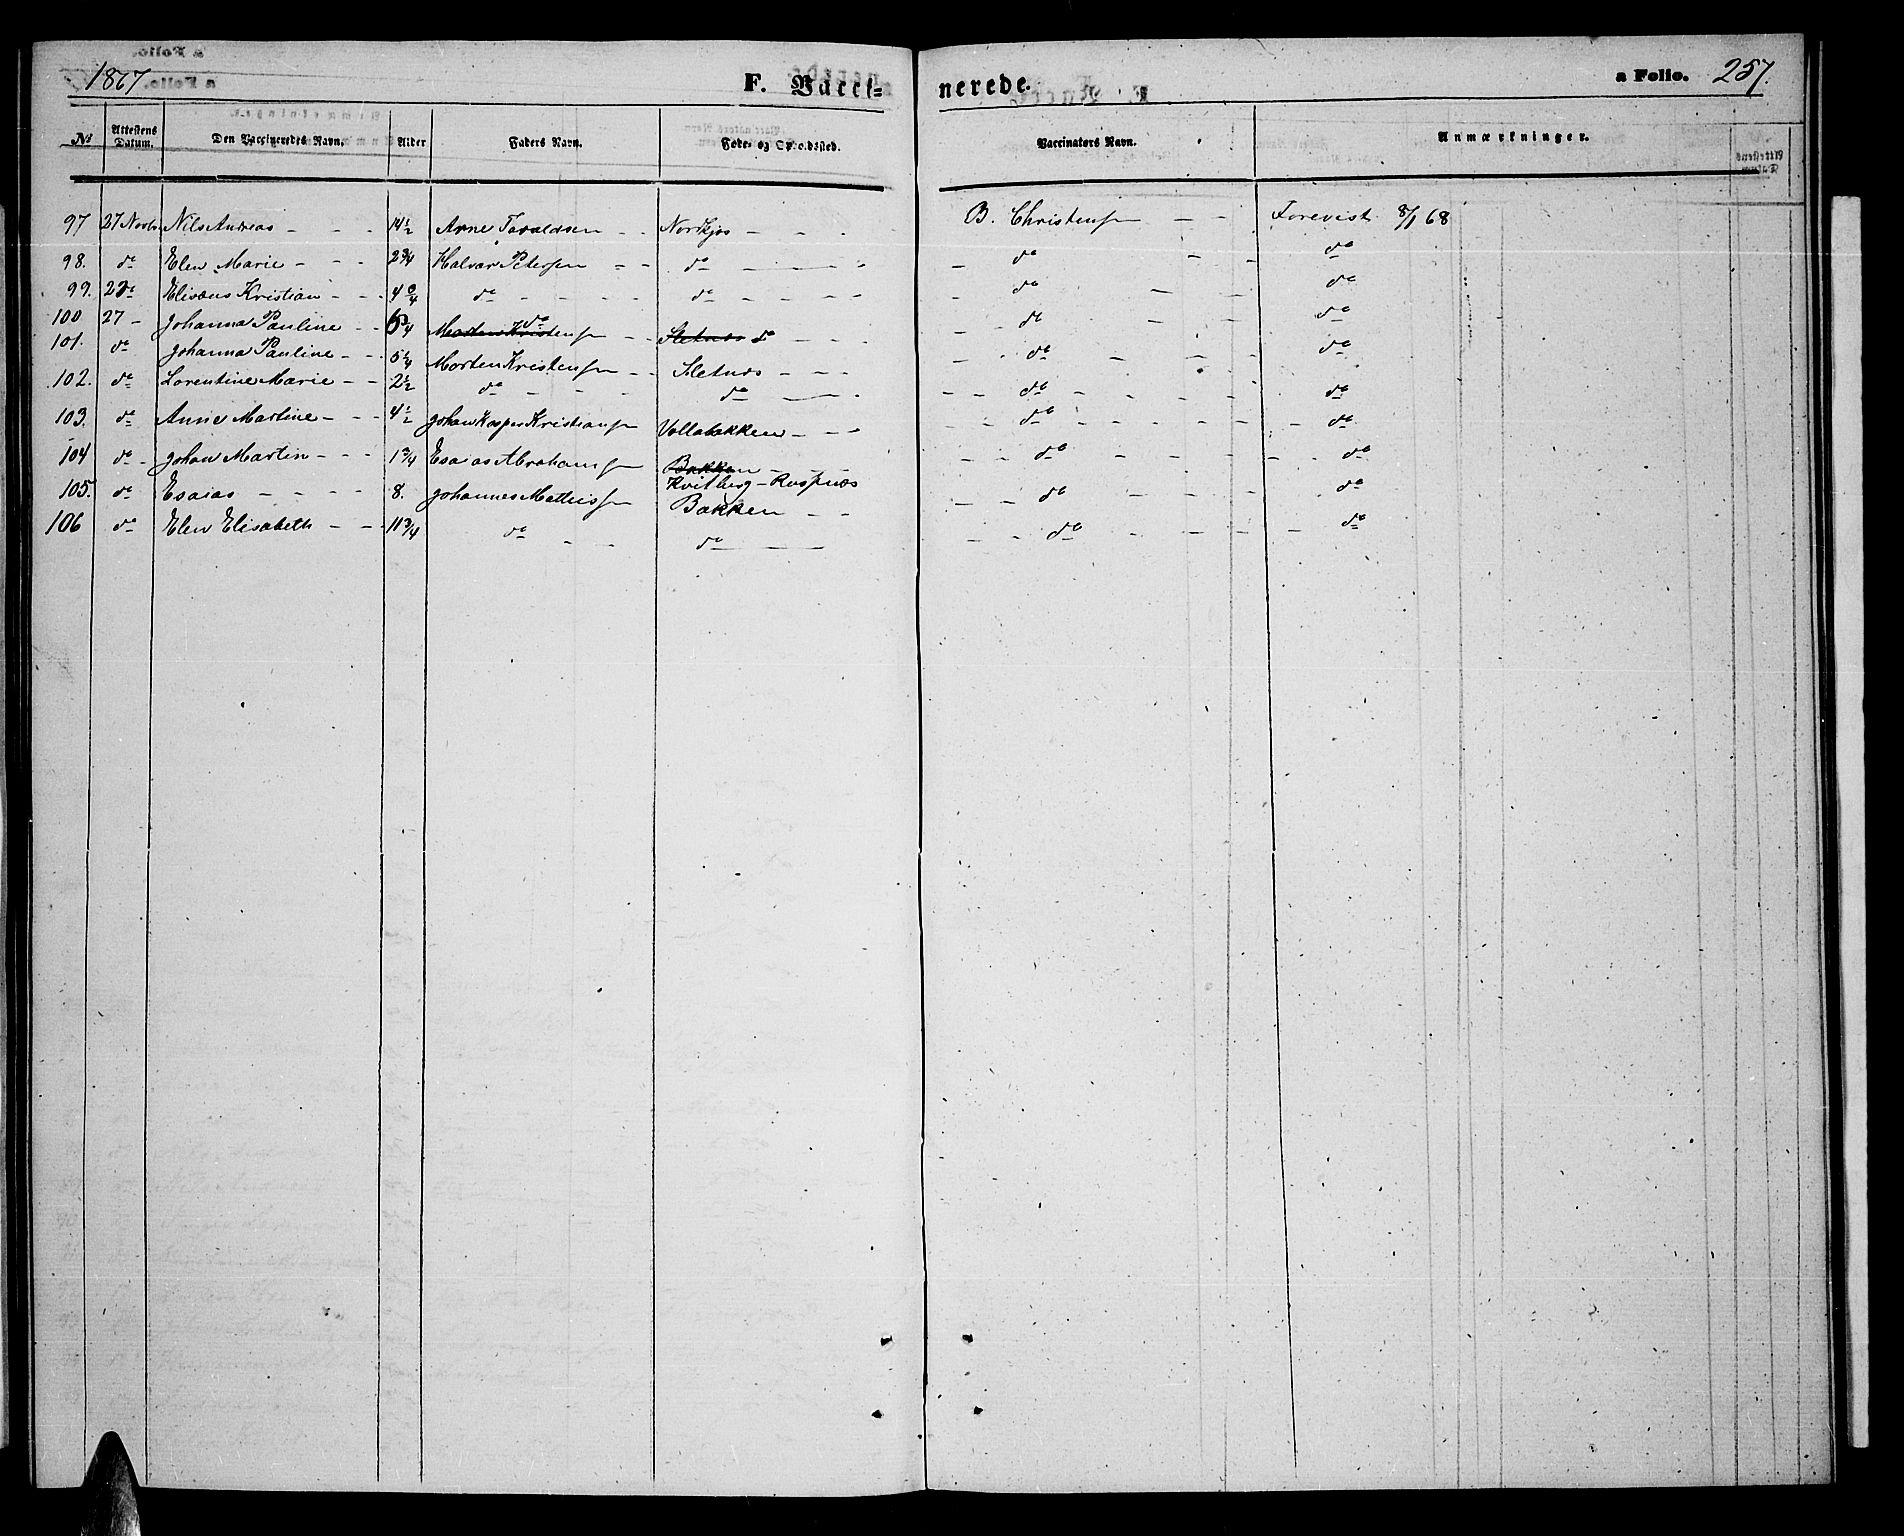 1867 F. Vacci= nerede. a Folio. 257.
No Attestens Datum. Den Vaccineredes Navn. Alder Faders Navn. Føde- og Opholdssted. Vaccinators Navn. Anmærkninger.
97 27 Novbr Nils Andreas - - - 14½ Arne Taraldsen - - Nordkjos - - - B. Christensen - - Forevist 8/1 68
98. do Elen Marie - - - 2¾ Halvar Petersen - - do - - - do - do
99. do Elisæus Kristian - - - 4 do - - - - do - - - - do - - do
100 27 - Johanna Pauline - - do - - do - - - do - - do
101. do Johanna Pauline - - - Morten Kristensen - - Sletnæs - - - do - - - do
102. do Lorentine Marie - - 2½ do - - - do - - - do - - - - do
103. do Anne Martine - - - 4½ Johan Kasper Kristiansen Vollabakken - - - do - - - - do
104 do - Johan Martin - - - 1¾ Esaias Abrahamsen Bakken - - - do - - - - do
Kvitberg - Raspnæs
105. do Esaias - - - - 8. Johannes Mathisen Bakken - - do - - - do
106 do Elen Elisabeth - - - 11¾ do - - do - - - do - - - do